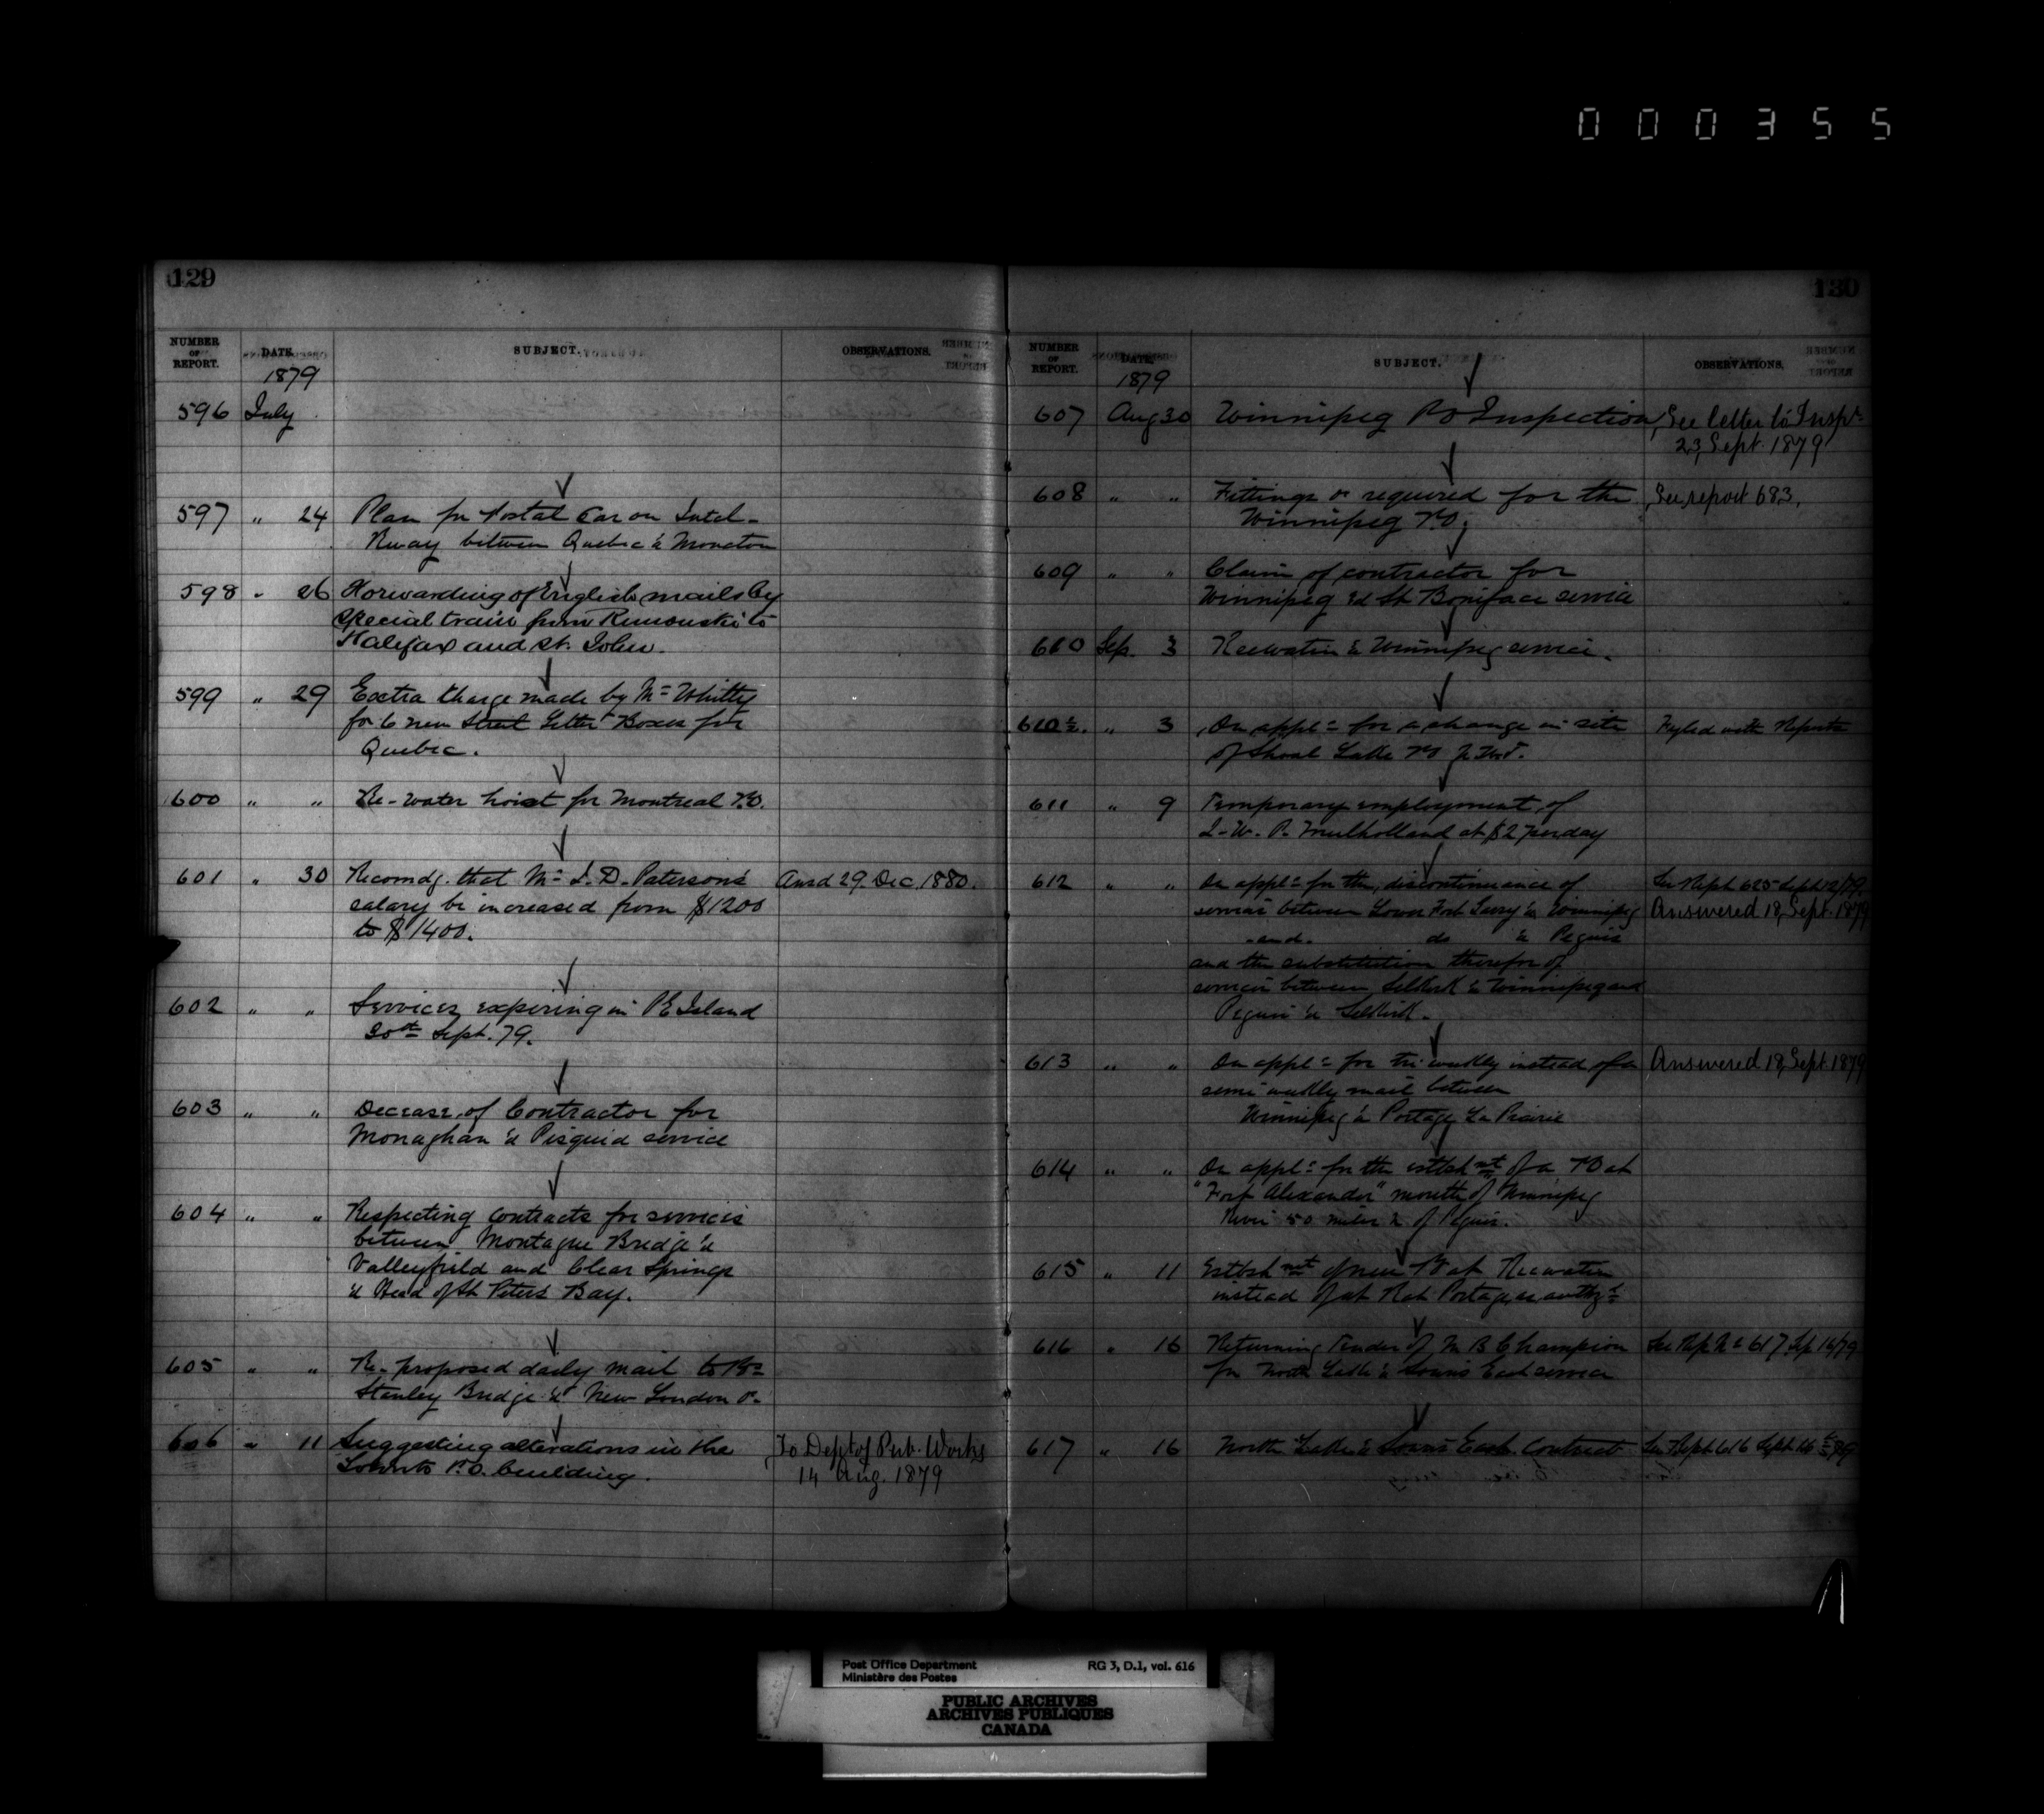 000355
129
NUMBER OF REPORT. DATE. SUBJECT. OBSERVATIONS.
1879
596 July
597 " 24 Plan for Postal Car on Intel-
Rway between Quebec & Moncton
598 " 26 Forwarding of English mails by
special train from Rimouski to
Halifax and St. John.
599 " 29 Extra Charge made by Mr Whitty
for 6 new Street Letter Boxes for
Quebec.
600 " " Re-water hoist for Montreal P.O.
601 " 30 Recomdg. that Mr J. D. Paterson's Ansd 29. Dec. 1880.
salary be increased from $1200
to $1400.
602 " " Services expiring in P E Island
30th Sept. 79.
603 " " Decease of Contractor for
Monaghan & Pisquid service
604 " " Respecting contracts for services
between Montague Bridge &
Valleyfield and Clear Springs
& Head of St Peters Bay.
605 " " Re-proposed daily mail to
Stanley Bridge & New London
606 " 11 Suggesting alterations in the To Dept of Pub. Works
Toronto P.O. building. 14 Aug. 1879
130
NUMBER OF REPORT. DATE. SUBJECT. OBSERVATIONS.
1879
607 Aug 30 Winnipeg PO Inspection, See letter to Inspr
23, Sept. 1879
608 " " Fittings &c required for the See report 683,
Winnipeg P.O.
609 " " Claim of contractor for
Winnipeg & St Boniface service
610 Sep. 3 Keewatin & Winnipeg service.
610½. " 3 On appln for a change in site Fyled with Reports
of Shoal Lake PO
611 " 9 Temporary employment of
J. W. P. Mulholland at $2 per day
612 " " On appln for the discontinuance of See Rept 625 Sept 12/79
services between Lower Fort Garry & Winnipeg Answered 18, Sept. 1879
-and- do & Peguis
and the substitution therefor of
services between Selkirk & Winnipeg and
Peguis & Selkirk.
613 " " On appln for tri-weekly instead of a Answered 18, Sept. 1879
semi-weekly mail between
Winnipeg & Portage La Prairie
614 " " On appln for the estbshmt of a PO at
"Fort Alexander" mouth of Winnipeg
River 50 miles N of Peguis.
615 " 11 Estbshmt of new PO at Keewatin
instead of at Rat Portage, as authzd
616 " 16 Returning Tender of W B Champion See Rep No 617. Sep 16/79
for North Lake & Souris East service
617 " 16 North Lake & Souris East Contract See Rept 616 Sept 16th 79
Post Office Department RG 3, D.1, vol. 616
Ministère des Postes
PUBLIC ARCHIVES
ARCHIVES PUBLIQUES
CANADA